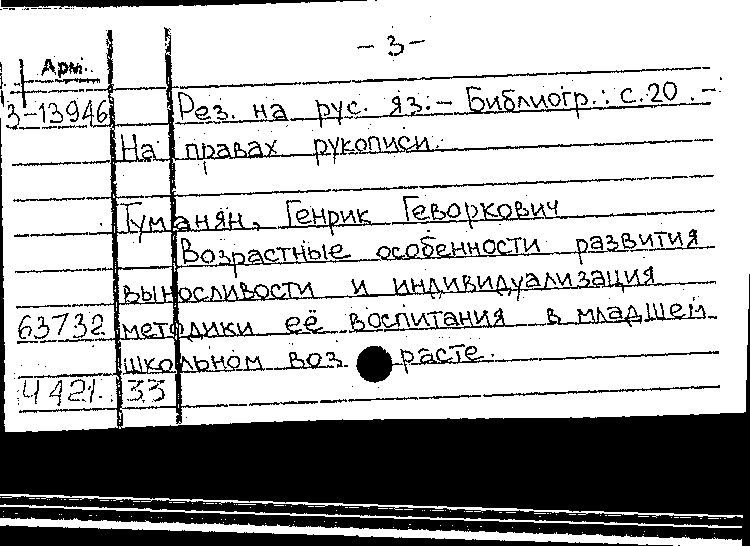 - 3 -
Арм.
3-13946 Рез. на рус. яз.- Библиогр.: с.20 .-
На правах рукописи.
Туманян, Генрик Геворкович
Возрастные особенности развития
выносливости и индивидуализация
63732 методики её воспитания в младшем
школьном возрасте.
Ч 421. 33